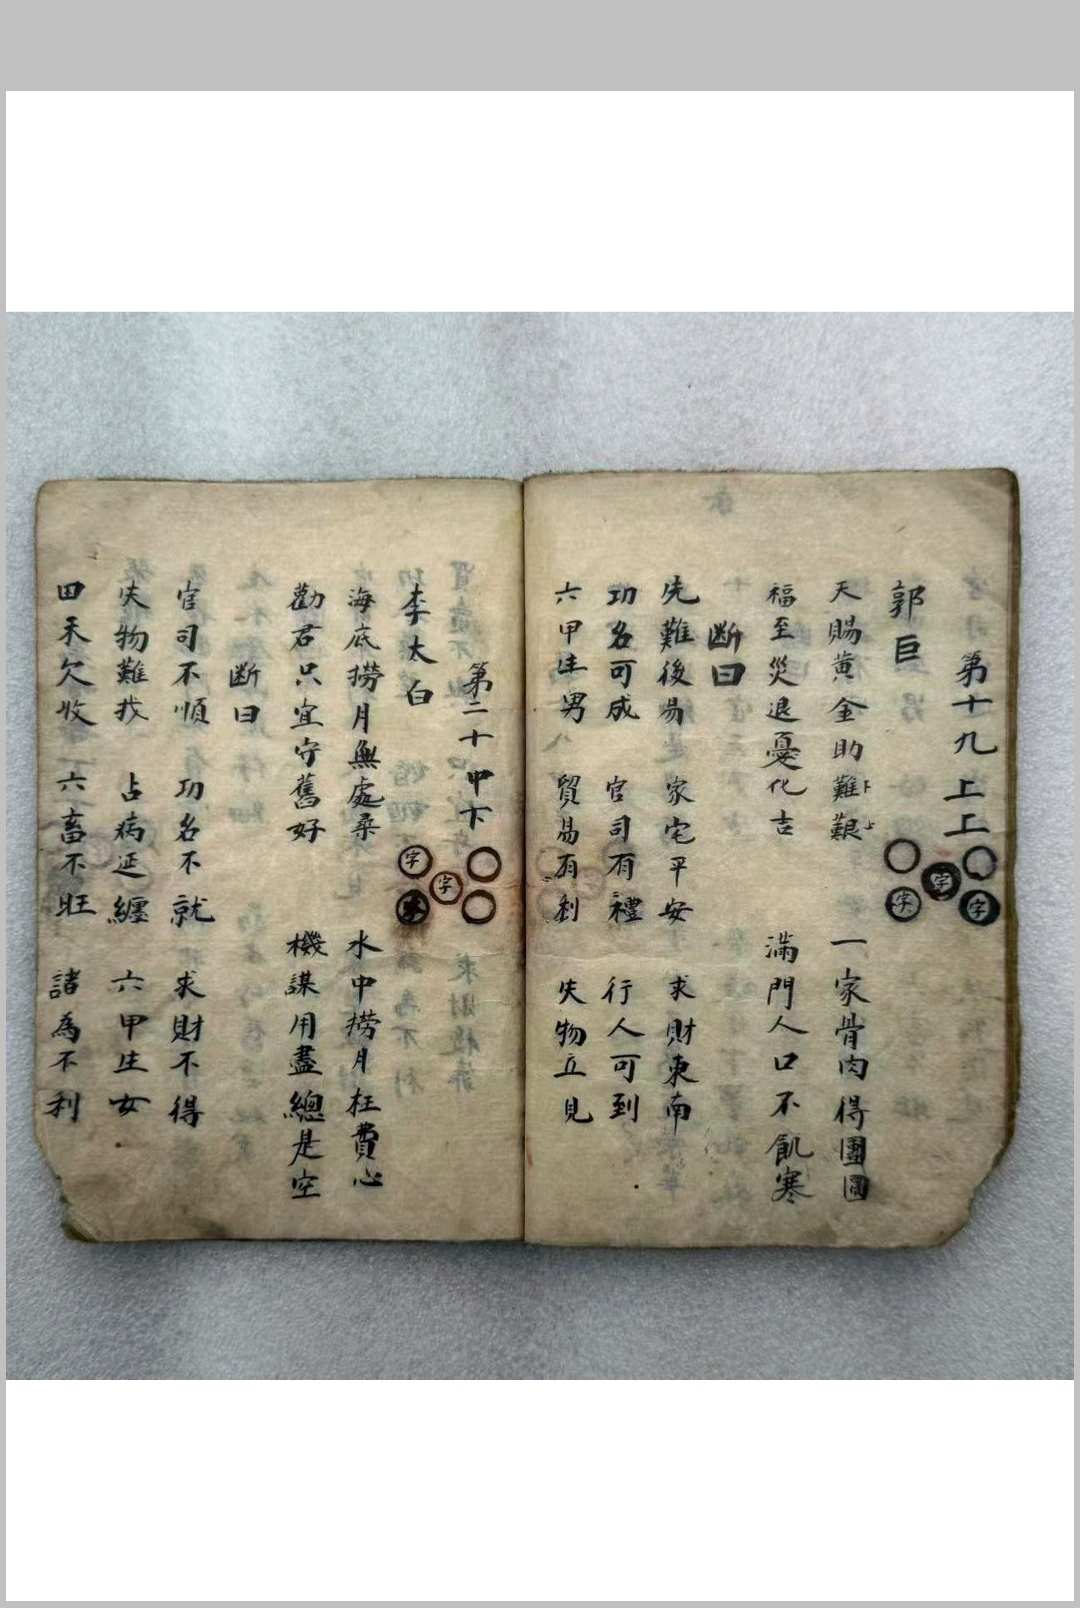 第十九 上上
字
字
字
郭巨
天賜黄金助難艱 一家骨肉得團圓
福至災退憂化吉 滿門人口不飢寒
断曰
先難後易 家宅平安 求財東南
功名可成 官司有禮 行人可到
六甲生男 貿易有利 失物立見
第二十 中下
字
字
李太白
海底捞月無處尋 水中捞月枉費心
勸君只宜守舊好 機謀用盡總是空
断曰
官司不順 功名不就 求財不得
失物難找 占病延纏 六甲生女
田禾欠收 六畜不旺 諸為不利